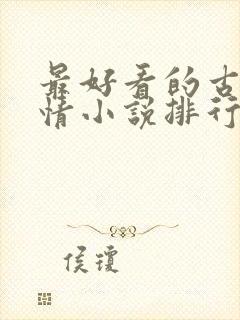 最好看的古
情小说排行
侯琼